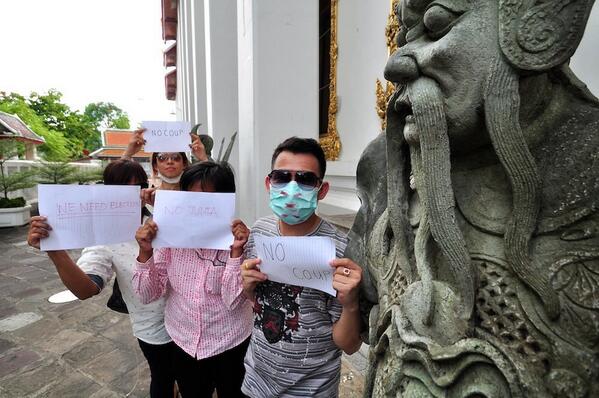 NO COUP
WE NEED ELECTION
NO JUNTA
NO
COUP!